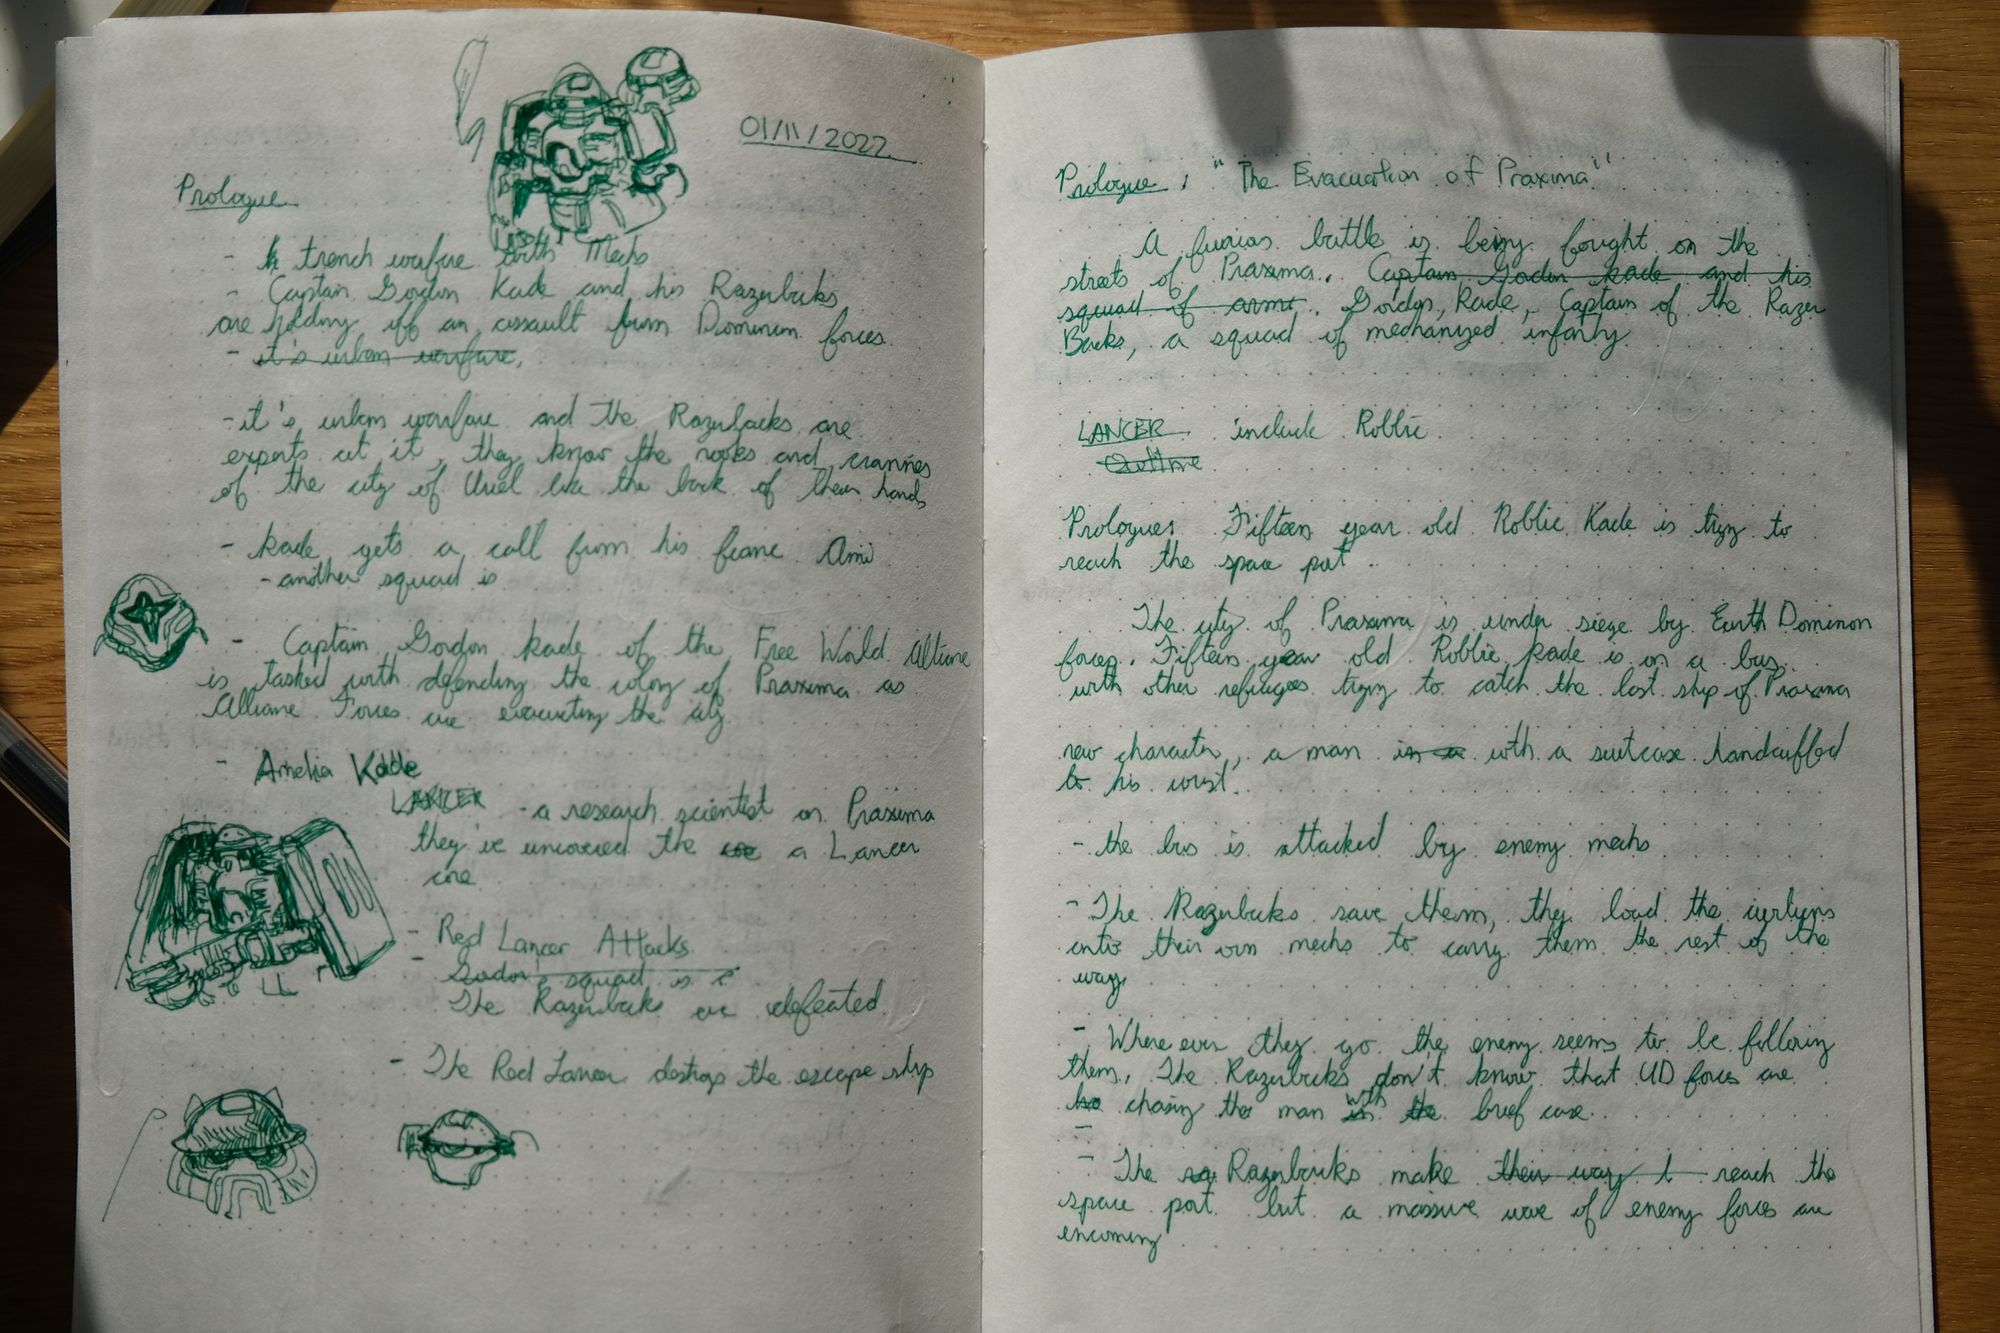 01/11/2022
Prologue
- trench warfare with Mechs
- Captain Gordon Kade and his Razerbacks
are holding off an assault from Dominion forces.
- it's urban warfare,
- it's urban warfare and the Razerbacks are
experts at it, they know the nooks and crannies
of the city of Uriel like the back of their hands
- Kade gets a call from his fianc Ami
- another squad is
- Captain Gordon Kade of the Free World Alliane
is tasked with defending the colony of Praxima as
Alliane Forces are evacuating the city
- Amelia Kade
LANCER - a research scientist on Praxima
they've uncovered the a Lancer
core
- Red Lancer Attacks
- Gordon's squad is
The Razerbacks are defeated.
- The Red Lancer destroys the escape ship
Prologue: "The Evacuation of Praxima"
A furios battle is being fought on the
streets of Praxima. Captain Gordon Kade and his
squad of arm. Gordon, Kade, Captain of the Razer
Backs, a squad of mechanized infanty
LANCER include Roblie
Outline
Prologue: Fifteen year old Roblie Kade is tryg to
reach the space port
The city of Praxima is under siege by Earth Dominon
forces. Fifteen year old Roblie Kade is on a bus
with other refugees tryng to catch the last ship of Praxama
new character, a man in a with a suitcase handcuffed
to his wrist.
- the bus is attacked by enemy mechs
- The Razerbacks save them, they load the
onto their own mechs to carry them the rest of the
way
- Where ever they go the enemy seems to be following
them. The Razerbacks don't know that UD forces are
chasing the man with the brief case.
- The Razerbacks make their way t reach the
space port but a massive wave of enemy forces are
encoming